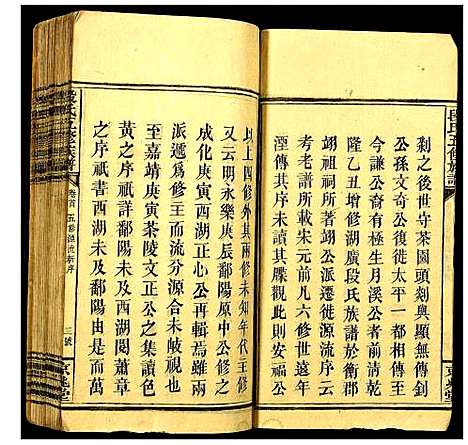 段氏五修族譜
剎之後世守茶園頭剡與顯無傳釗
公孫文奇公復徙太平一都分傳迄
今謙公裔有極生月溪公者前明正
隆乙丑增修湖廣段氏族譜於衡郡
翊祖祠所著翊公派遷徙源流序云
考老譜所載宋元前凡六修世遠年
湮傳其序未讀其牒觀此則安福公
以上四修外其兩修未知年代王修
又云明永樂庚辰鄱陽原中公修之
成化庚寅西湖正心公再輯焉雖兩
派攸為修主而流分源合未歧視也
至嘉靖庚寅茶陵文正公之集讀色
黃之序祇詳鄱陽未及西湖閱蕭章
之序祇言西湖未及鄱陽由是而萬
卷首
三號
京兆堂